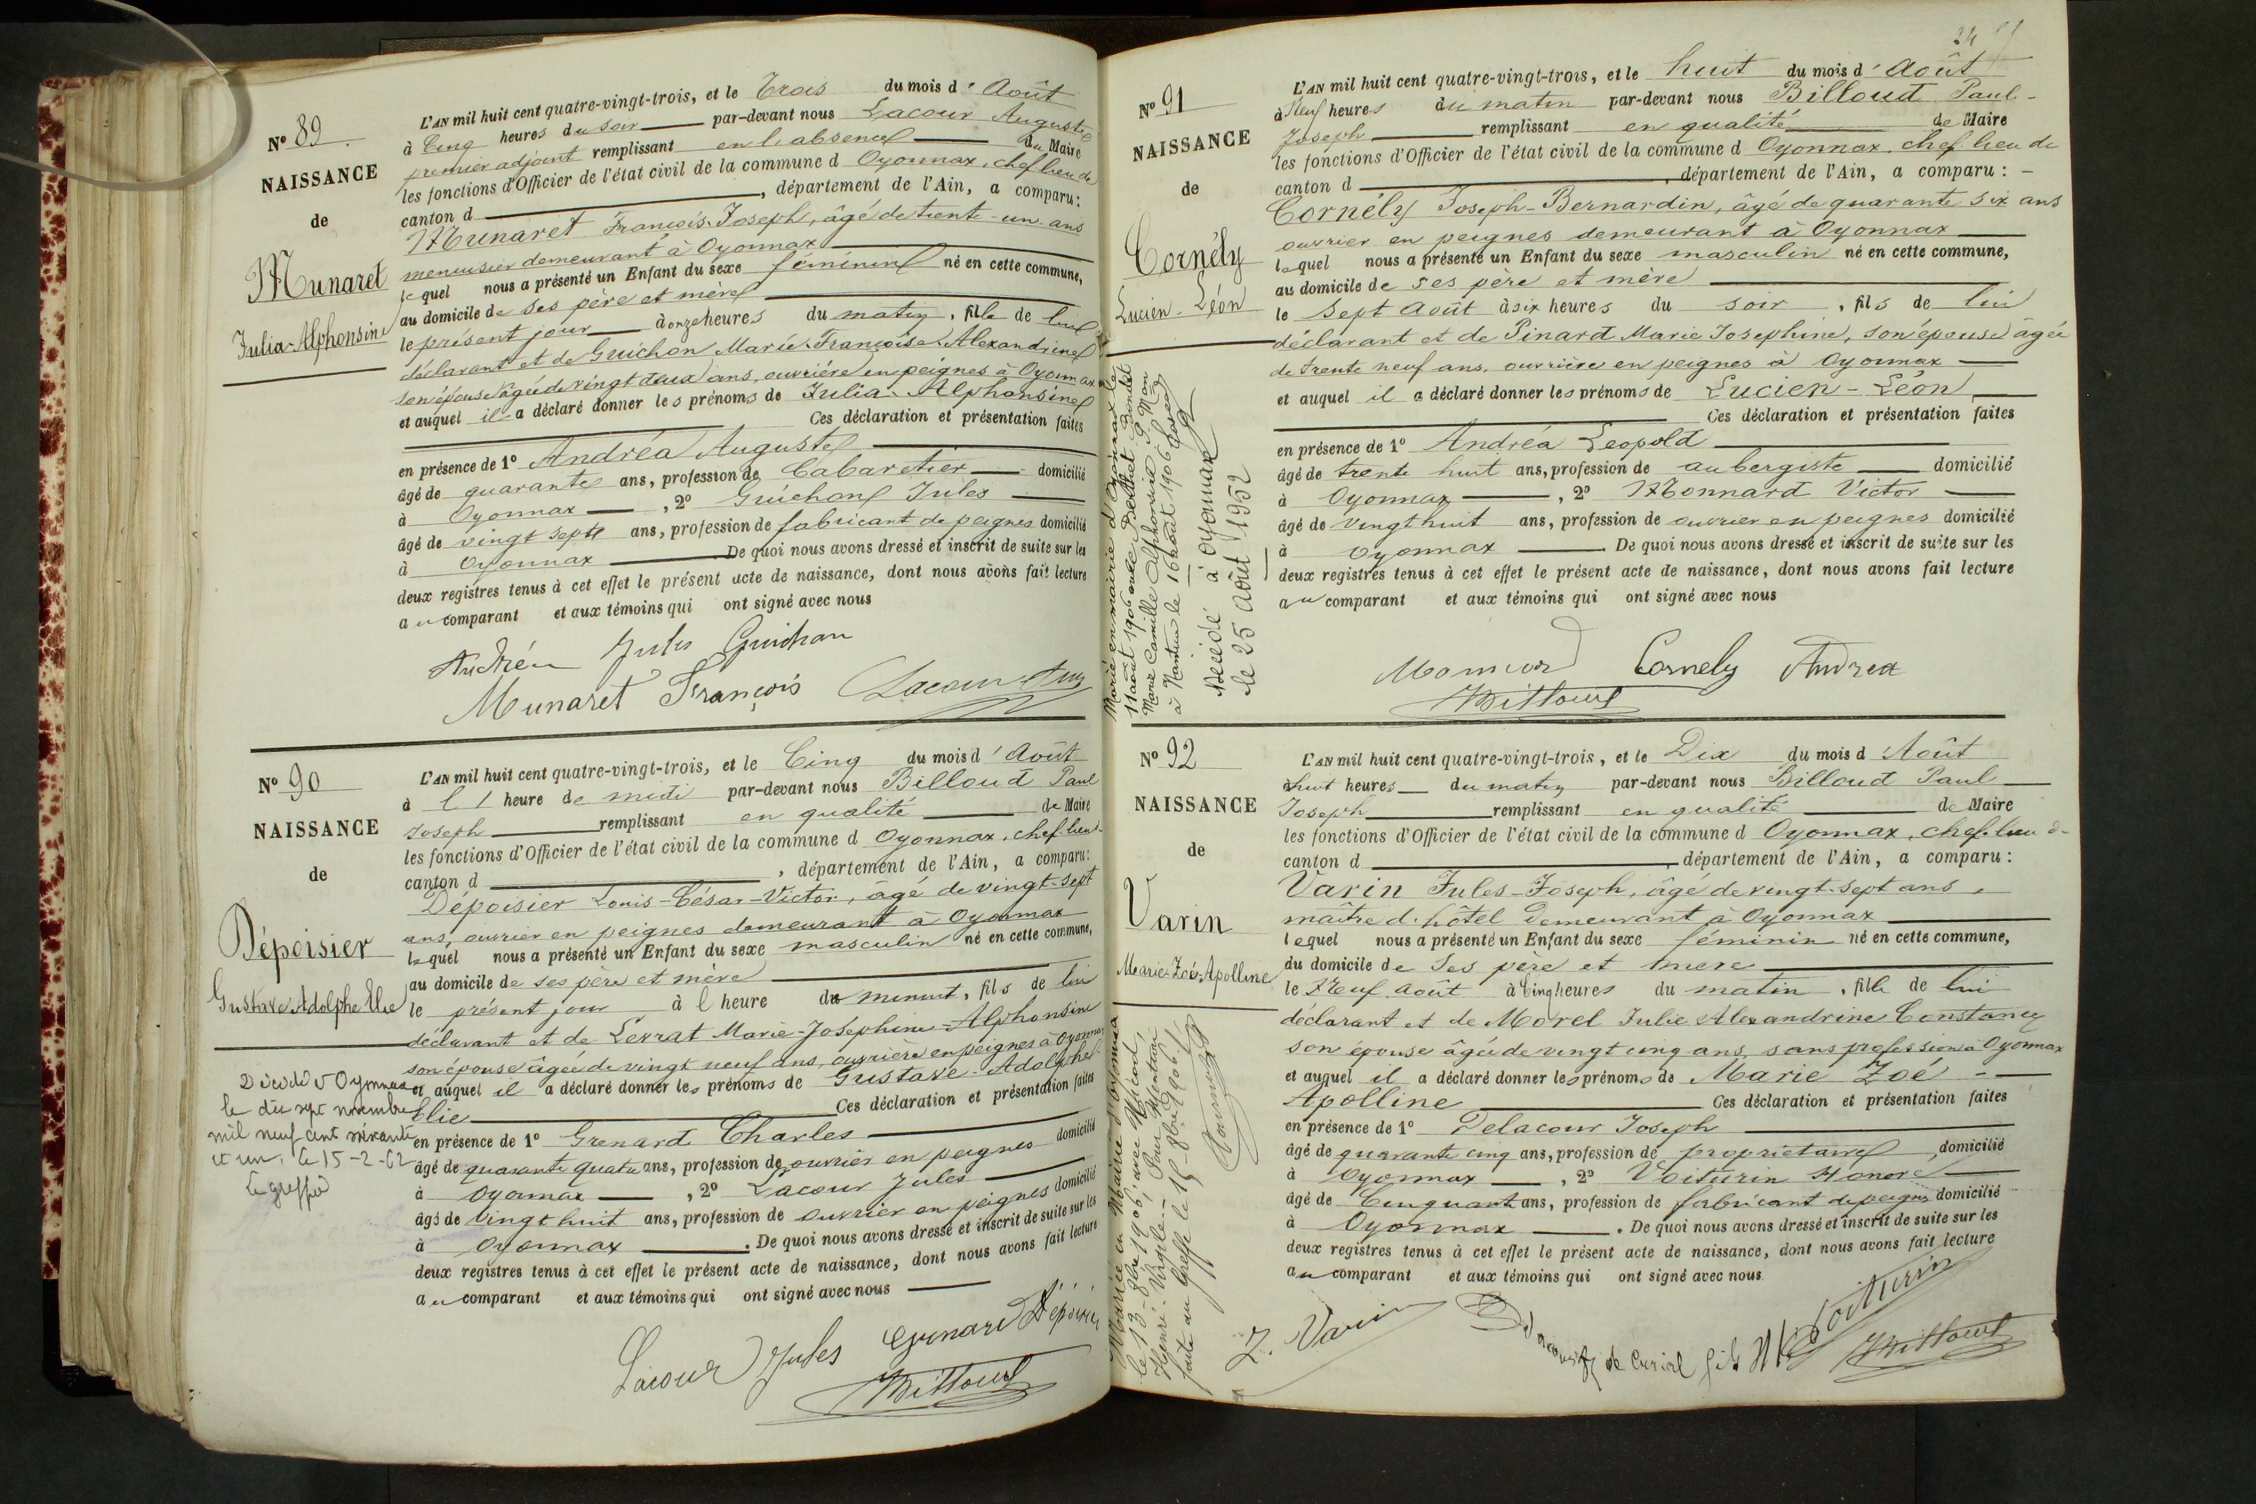 N° 89
NAISSANCE
de
Munaret
Julia-Alphonsine
L'AN mil huit cent quatre-vingt-trois, et le Trois du mois d'Août
à Cinq heures du soir par-devant nous Lacour Auguste
premier adjoint remplissant en l'absence du Maire
les fonctions d'Officier de l'état civil de la commune d Oyonnax, chef lieu de
canton d , département de l'Ain, a comparu:
Munaret François-Joseph, âgé de trente-un ans
menuisier demeurant à Oyonnax
lequel nous a présenté un Enfant du sexe féminin né en cette commune,
au domicile de ses père et mère
le présent jour à onze heures du matin, fille de lui
déclarant et de Guichon Marie-Françoise-Alexandrine
son épouse âgée de vingt deux ans, ouvrière en peignes à Oyonnax
et auquel il a déclaré donner les prénoms de Julia-Alphonsine
Ces déclaration et présentation faites
en présence de 1° Andréa Auguste
âgé de quarante ans, profession de Cabaretier domicilié
à Oyonnax , 2° Guichon Jules
âgé de vingt sept ans, profession de fabricant de peignes domicilié
à Oyonnax De quoi nous avons dressé et inscrit de suite sur les
deux registres tenus à cet effet le présent acte de naissance, dont nous avons fait lecture
au comparant et aux témoins qui ont signé avec nous
Andréa Jules Guichon
Munaret François Lacour Aug
N° 90
NAISSANCE
de
Dépoisier
Gustave Adolphe Elie
Décédé à Oyonnax
le dix sept novembre
mil neuf cent soixante
et un. Le 15-2-62
Le greffier
L'AN mil huit cent quatre-vingt-trois, et le Cinq du mois d'Août
à l 1 heure de midi par-devant nous Billoud Paul
Joseph remplissant en qualité de Maire
les fonctions d'Officier de l'état civil de la commune d Oyonnax, chef lieu
canton d , département de l'Ain, a comparu:
Dépoisier Louis-César-Victor, âgé de vingt-sept
ans, ouvrier en peignes demeurant à Oyonnax
lequel nous a présenté un Enfant du sexe masculin né en cette commune,
au domicile de ses père et mère
le présent jour à 1 heure du minuit, fils de lui
déclarant et de Levrat Marie-Josephine-Alphonsine
son épouse âgée de vingt neuf ans, ouvrière en peignes à Oyonnax
et auquel il a déclaré donner les prénoms de Gustave-Adolphe-
Elie Ces déclaration et présentation faites
en présence de 1° Grenard Charles
âgé de quarante quatre ans, profession de ouvrier en peignes domicilié
à Oyonnax , 2° Lacour Jules
âgé de vingt huit ans, profession de ouvrier en peignes domicilié
à Oyonnax . De quoi nous avons dressé et inscrit de suite sur les
deux registres tenus à cet effet le présent acte de naissance, dont nous avons fait lecture
au comparant et aux témoins qui ont signé avec nous
Lacour Jules Grenard Dépoisier
Billoud
24
N° 91
NAISSANCE
de
Cornély
Lucien-Léon
Marié en mairie d'Oyonnax le
11 août 1906 avec
Marie Camille Alphonsine P. Mon
à Nantua le 16 août 1906
Décédé à Oyonnax
le 25 Août 1952
L'AN mil huit cent quatre-vingt-trois, et le huit du mois d'Août
à Neuf heures du matin par-devant nous Billoud Paul-
Joseph remplissant en qualité de Maire
les fonctions d'Officier de l'état civil de la commune d Oyonnax, chef lieu de
canton d , département de l'Ain, a comparu:
Cornély Joseph-Bernardin, âgé de quarante six ans
ouvrier en peignes demeurant à Oyonnax
lequel nous a présenté un Enfant du sexe masculin né en cette commune,
au domicile de ses père et mère
le Sept Août à six heures du soir, fils de lui
déclarant et de Pinard Marie Josephine, son épouse âgée
de trente neuf ans, ouvrière en peignes à Oyonnax
et auquel il a déclaré donner les prénoms de Lucien-Léon
Ces déclaration et présentation faites
en présence de 1° Andréa Leopold
âgé de trente huit ans, profession de aubergiste domicilié
à Oyonnax , 2° Monnard Victor
âgé de vingt huit ans, profession de ouvrier en peignes domicilié
à Oyonnax . De quoi nous avons dressé et inscrit de suite sur les
deux registres tenus à cet effet le présent acte de naissance, dont nous avons fait lecture
au comparant et aux témoins qui ont signé avec nous
Monnard Cornely Andrea
Billoud
N° 92
NAISSANCE
de
Varin
Marie-Zoé-Apolline
Mariée en Mairie d'Oyonnax
le 13-8bre 1906, avec Nicond,
Henri-Virgile.- Pour Mention
faite au Greffe le 15 8bre 1906.
L'AN mil huit cent quatre-vingt-trois, et le Dix du mois d'Août
à huit heures du matin par-devant nous Billoud Paul
Joseph remplissant en qualité de Maire
les fonctions d'Officier de l'état civil de la commune d Oyonnax, chef-lieu d-
canton d , département de l'Ain, a comparu:
Varin Jules-Joseph, âgé de vingt-sept ans,
maître d'hôtel demeurant à Oyonnax
lequel nous a présenté un Enfant du sexe féminin né en cette commune,
du domicile de ses père et mère
le Neuf Août à Cinq heures du matin, fille de lui
déclarant et de Morel Julie Alexandrine Constance
son épouse âgée de vingt cinq ans, sans profession à Oyonnax
et auquel il a déclaré donner les prénoms de Marie Zoé -
Apolline Ces déclaration et présentation faites
en présence de 1° Delacour Joseph
âgé de quarante cinq ans, profession de propriétaire domicilié
à Oyonnax , 2° Voiturin Honoré
âgé de Cinquante ans, profession de fabricant de peignes domicilié
à Oyonnax . De quoi nous avons dressé et inscrit de suite sur les
deux registres tenus à cet effet le présent acte de naissance, dont nous avons fait lecture
au comparant et aux témoins qui ont signé avec nous
J. Varin fils H Voiturin
Billoud